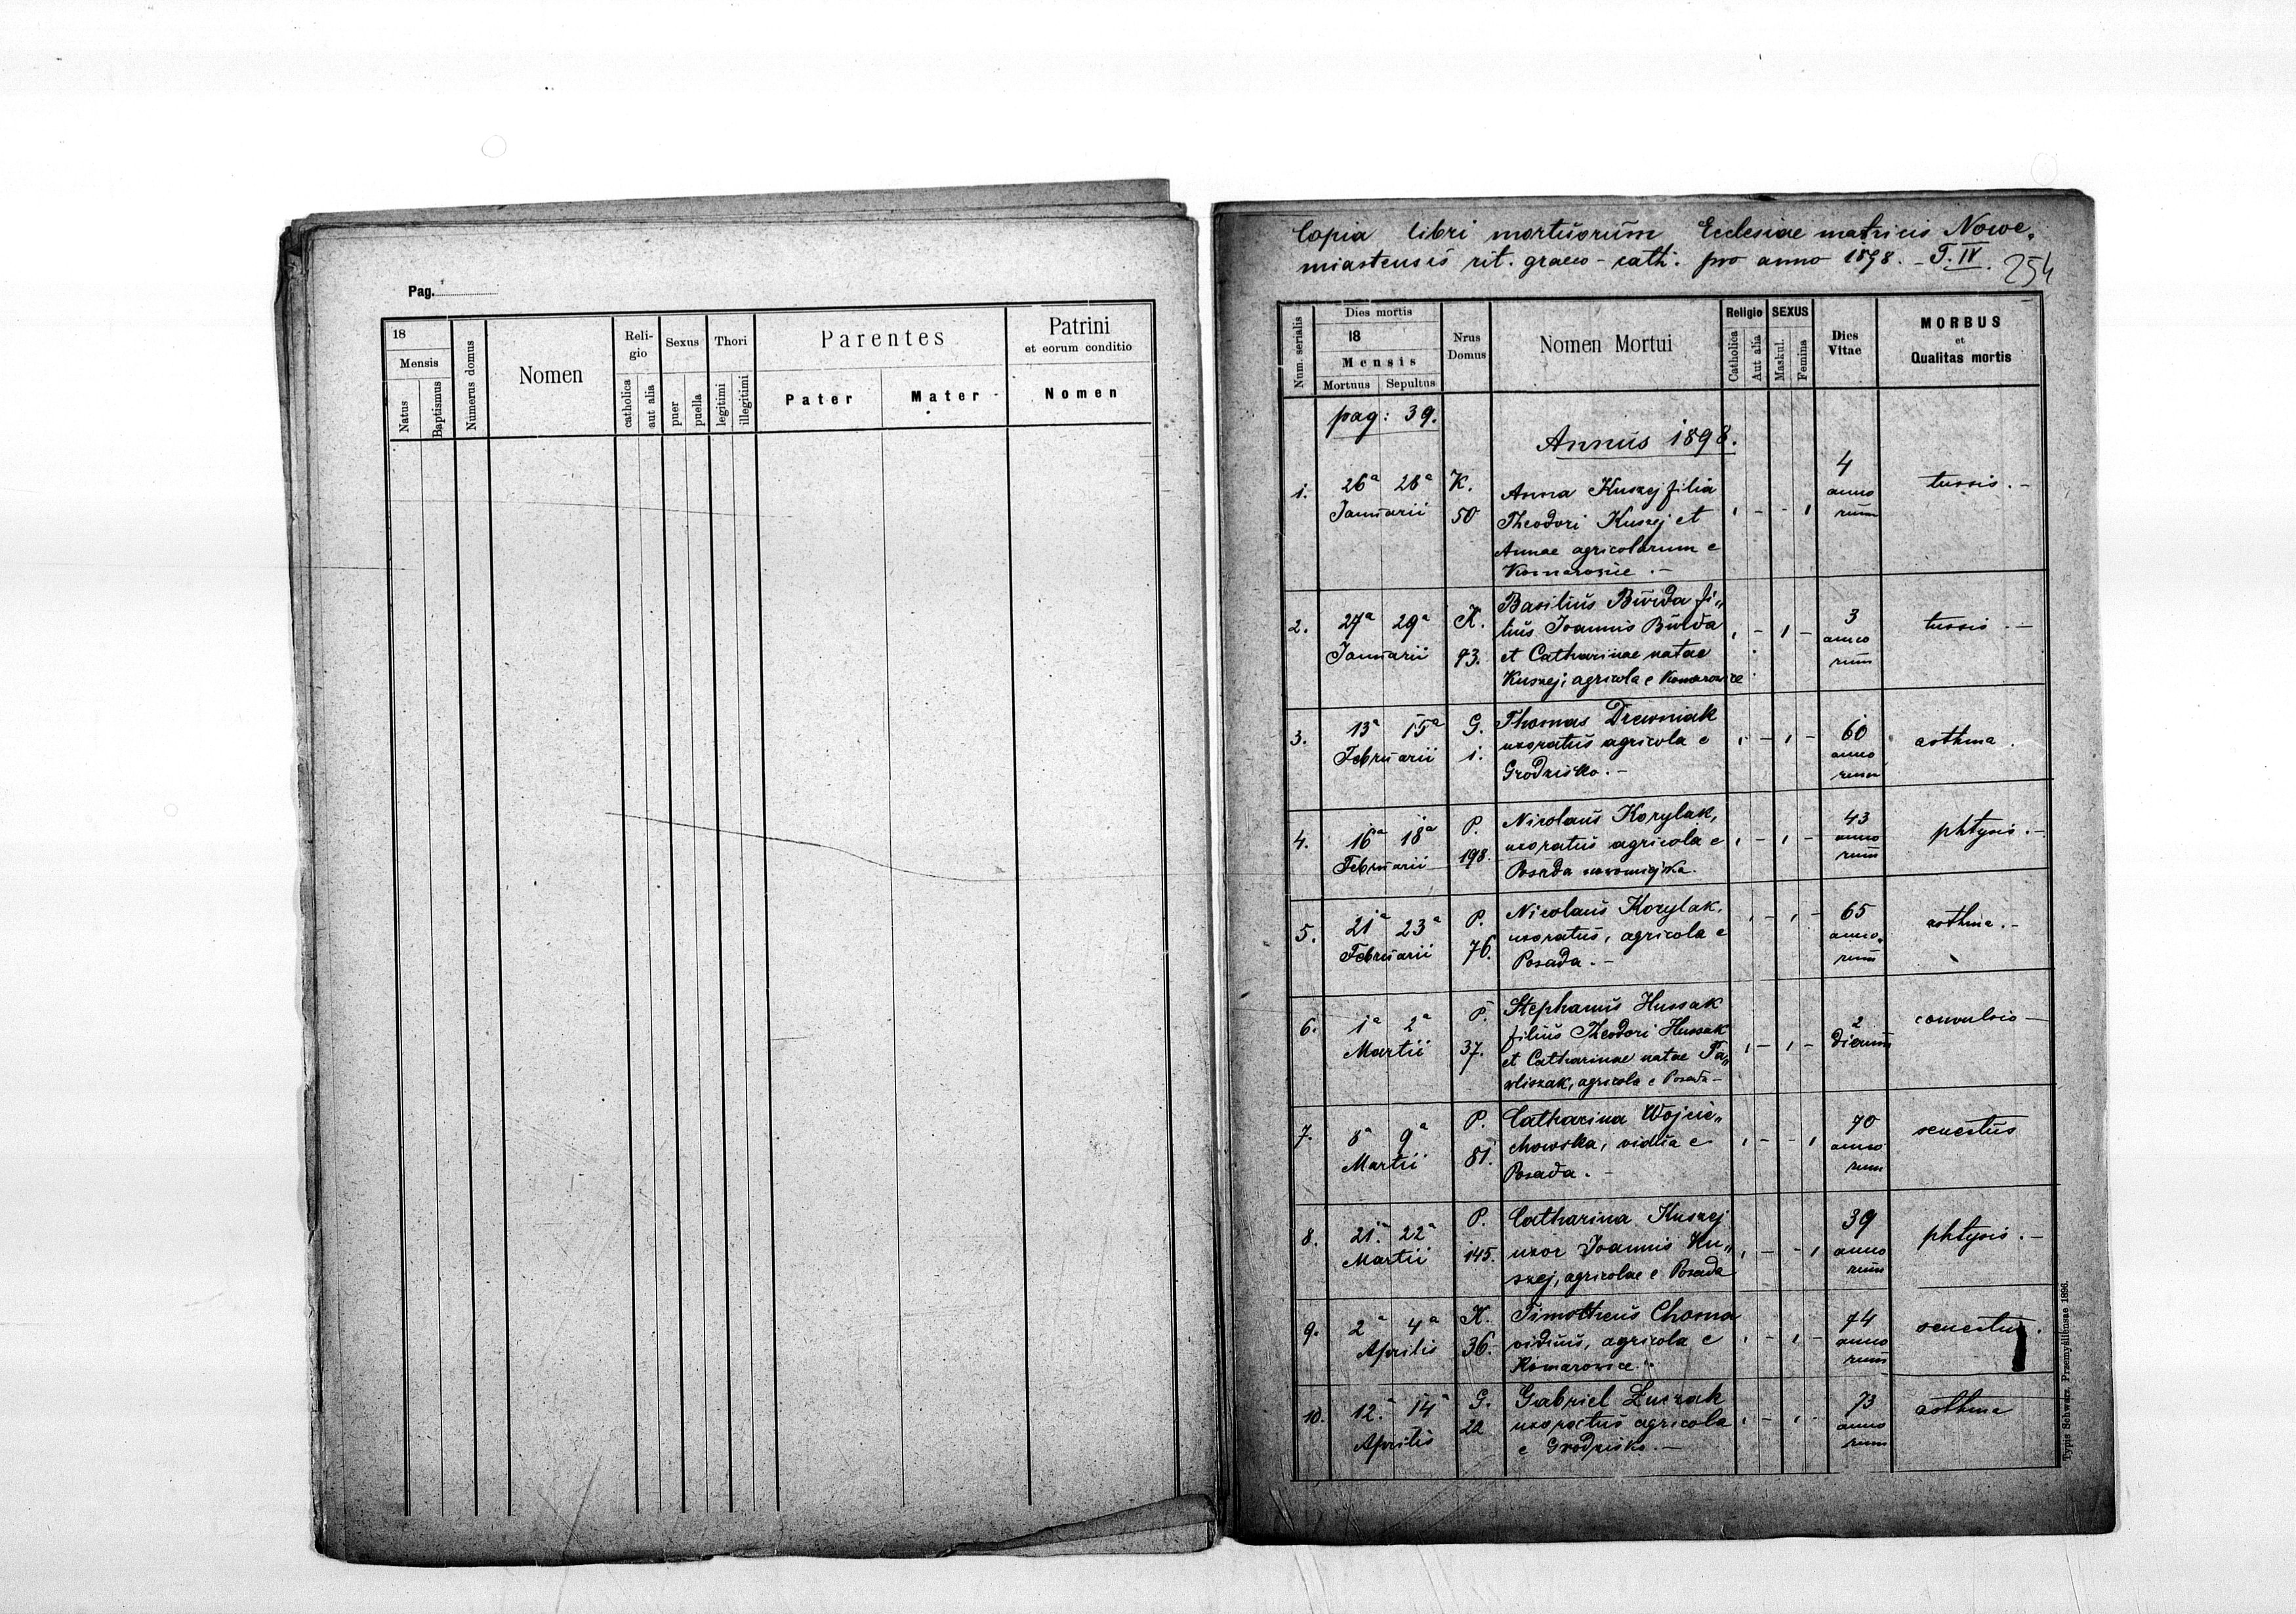 Pag.
18
Mensis
Natus
Baptismus
Numerus domus
Nomen
Reli-
gio
catholica
aut alia
Sexus
puer
puella
Thori
legitimi
illegitimi
Parentes
Pater
Mater
Patrini
et eorum conditio
Nomen
Copia libri mortuorum Ecclesiae matricis Nowe„
miastensis rit. graeco-cath. pro anno 1898. - T. IV.
254
Num. serialis
Dies mortis
18
Mensis
Mortuus Sepultus
Nrus
Domus
Nomen Mortui
Religio
Catholica
Aut alia
SEXUS
Maskul.
Femina
Dies
Vitae
MORBUS
et
Qualitas mortis
pag: 39.
Annus 1898.
1. 26a 28a Januarii K. 50
Anna Kuszej filia
Theodori Kuszej et
Annae agricolarum e
Komarowice .-
4
anno
rum
tussis .-
2. 27a 29a Januarii K. 93.
Basilius Burda fi„
lius Joannis Burda
et Catharinae natae
Kuszej, agricola e Komarowice
3
anno
rum
tussis .-
3. 13a 15a Februarii G. 1.
Thomas Drewniak
uxoratus agricola e
Grodzisko .-
60
anno
rum
asthma .
4. 16a 18a Februarii P. 198.
Nicolaus Korylak,
uxoratus agricola e
Posada nowomiejska.
43
anno
rum
phtysis .-
5. 21a 23a Februarii P. 76.
Nicolaus Korylak,
uxoratus, agricola e
Posada .-
65
anno„
rum
asthma .-
6. 1a 2a Martii P. 37.
Stephanus Hussak
filius Theodori Hussak
et Catharinae natae Pa„
wliszak, agricola e Posada -
2
dierum
convulsio -
7. 8a 9a Martii P. 81.
Catharina Wojcie„
chowska, vidua e
Posada .-
70
anno
rum
senectus
8. 21a 22a Martii P. 145.
Catharina Kuszej
uxor Joannis Ku„
szej, agricolae e Posada
39
anno
rum
phtysis .-
9. 2a 4a Aprilis K. 36.
Timotheus Choma
viduus, agricola e
Komarowice .-
74
anno
rum
senectus .
10. 12a 14a Aprilis G. 22
Gabriel Łuczak
uxoratus agricola
e Grodzisko .-
73
anno
rum
asthma
Typis Schwarz. Przemyśliensae 1896.